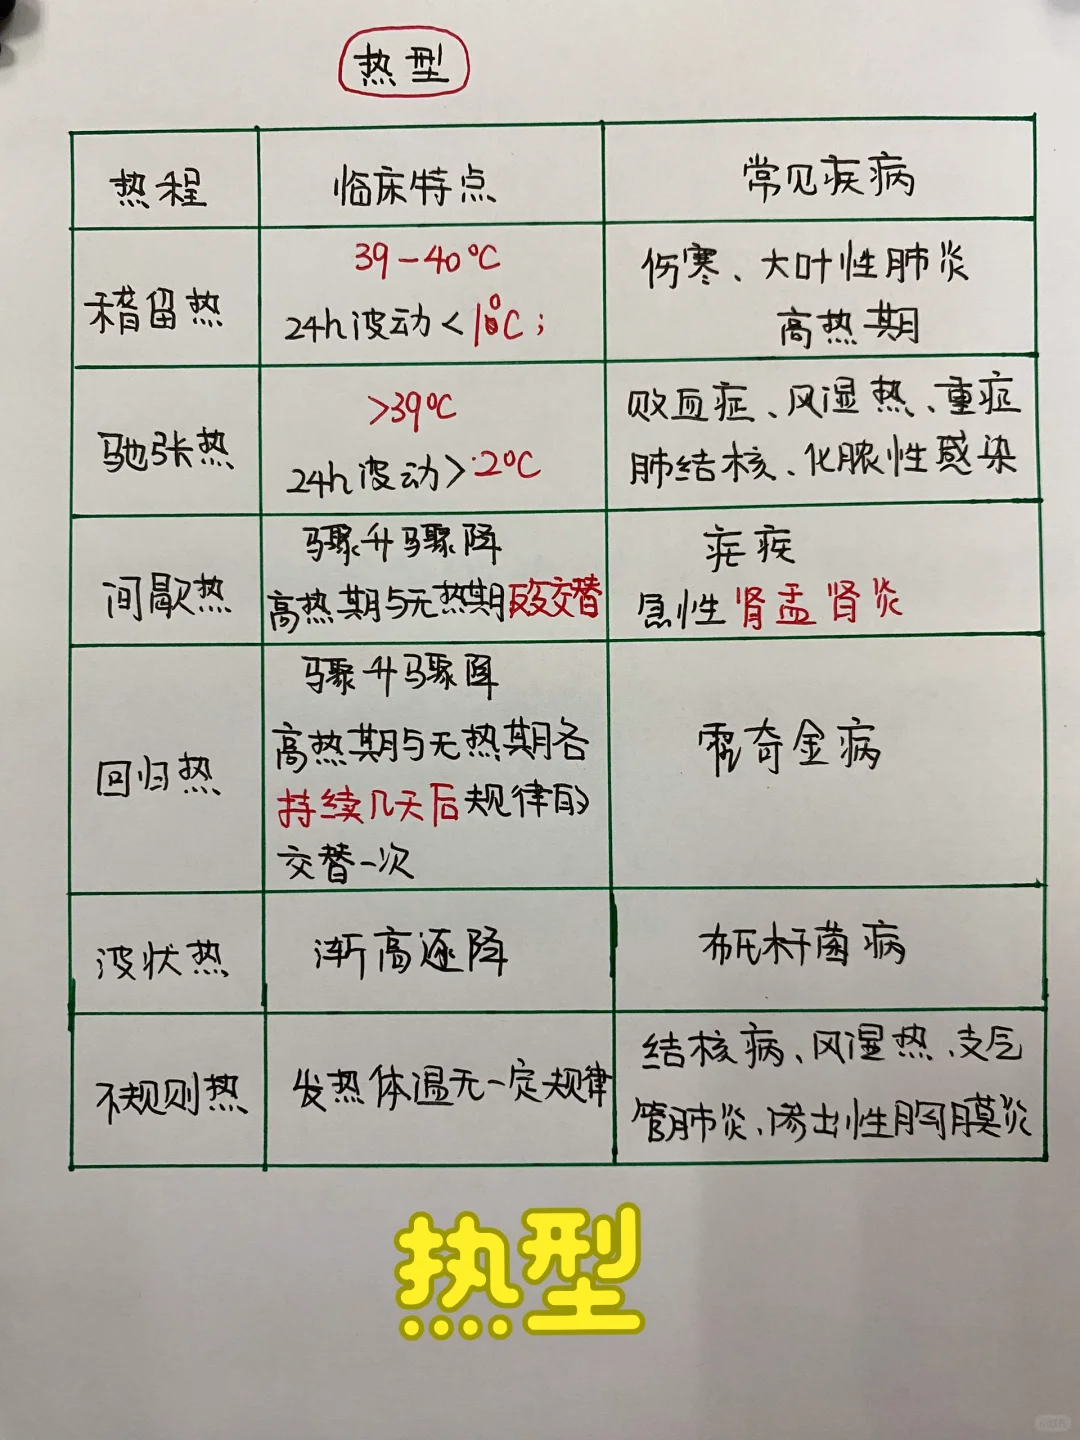 热型
热程 临床特点 常见疾病
稽留热
39-40℃
24h波动<1℃;
伤寒、大叶性肺炎
高热期
驰张热
>39℃
24h波动>2℃
败血症、风湿热、重症
肺结核、化脓性感染
间歇热
骤升骤降
高热期与无热期反复交替
疟疾
急性肾盂肾炎
回归热
骤升骤降
高热期与无热期各
持续几天后规律的
交替一次
霍奇金病
波状热
渐高逐降
布氏杆菌病
不规则热
发热体温无一定规律
结核病、风湿热、支气
管肺炎、渗出性胸膜炎
热型